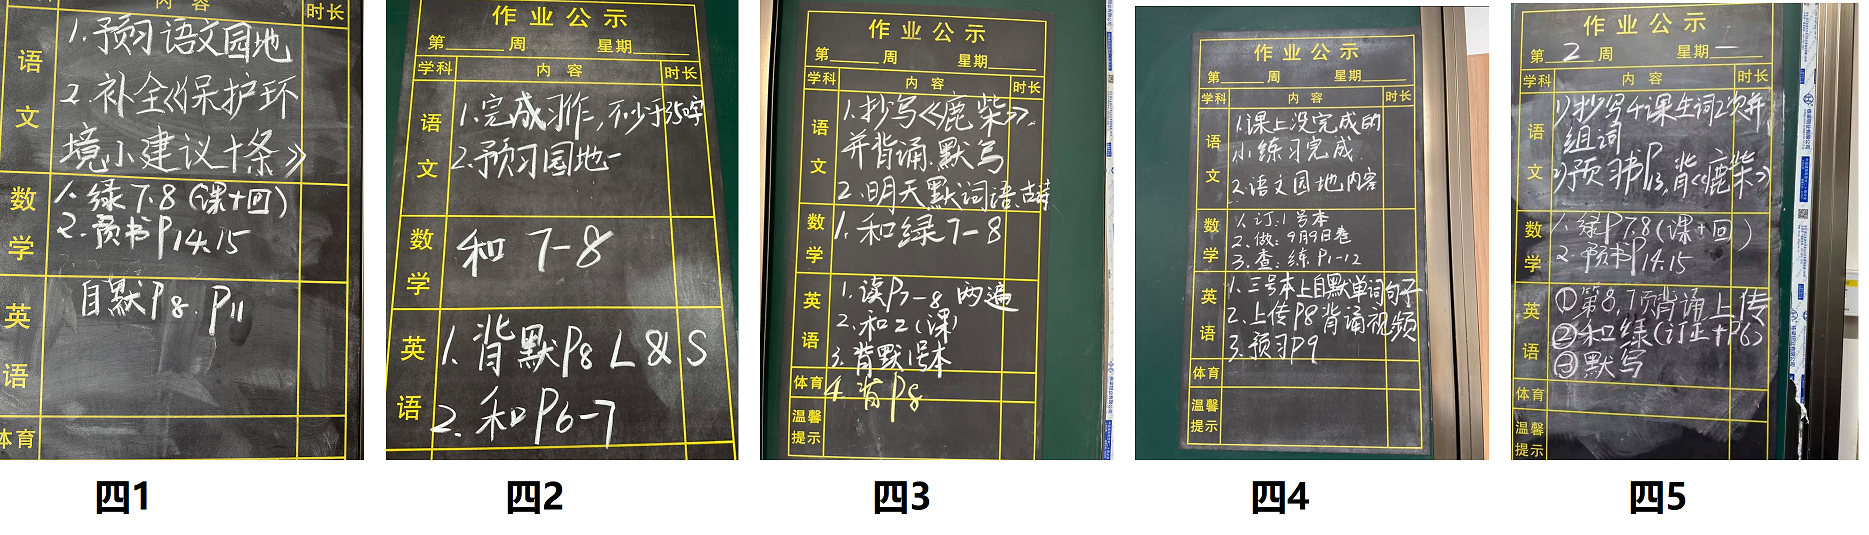 内 容
时长
语文
1.预习语文园地
2.补全《保护环
境小建议十条》
数学
1.绿7.8(课+回)
2.预书P14.15
英语
自默P8.P11
体育
四1
作业公示
第 周 星期
学科 内 容 时长
语文
1.完成习作,不少于350字
2.预习园地一
数学
和 7-8
英语
1.背默P8 L&S
2.和P6-7
四2
作业公示
第 周 星期
学科 内 容 时长
语文
1.抄写《鹿柴》.
并背诵.默写
2.明天默词语.古诗
数学
1.和绿7-8
英语
1.读P7-8 两遍
2.和2(课)
3.背默1号本
体育
4.背P8
温馨
提示
四3
作业公示
第 周 星期
学科 内 容 时长
语文
1.课上没完成的
小练习完成.
2.语文园地内容
数学
1.订:1号本
2.做:9月9日卷
3.查:练P1-12
英语
1.三号本上自默单词句子
2.上传P8背诵视频
3.预习P9
体育
温馨
提示
四4
作业公示
第 2 周 星期一
学科 内 容 时长
语文
1)抄写4课生词2次并
组词
2)预习书P13,背《鹿柴》
数学
1.绿P7.8(课+回)
2.预书P14.15
英语
①第8,7页背诵上传
②和绿(订正+P6)
③默写
体育
温馨
提示
四5